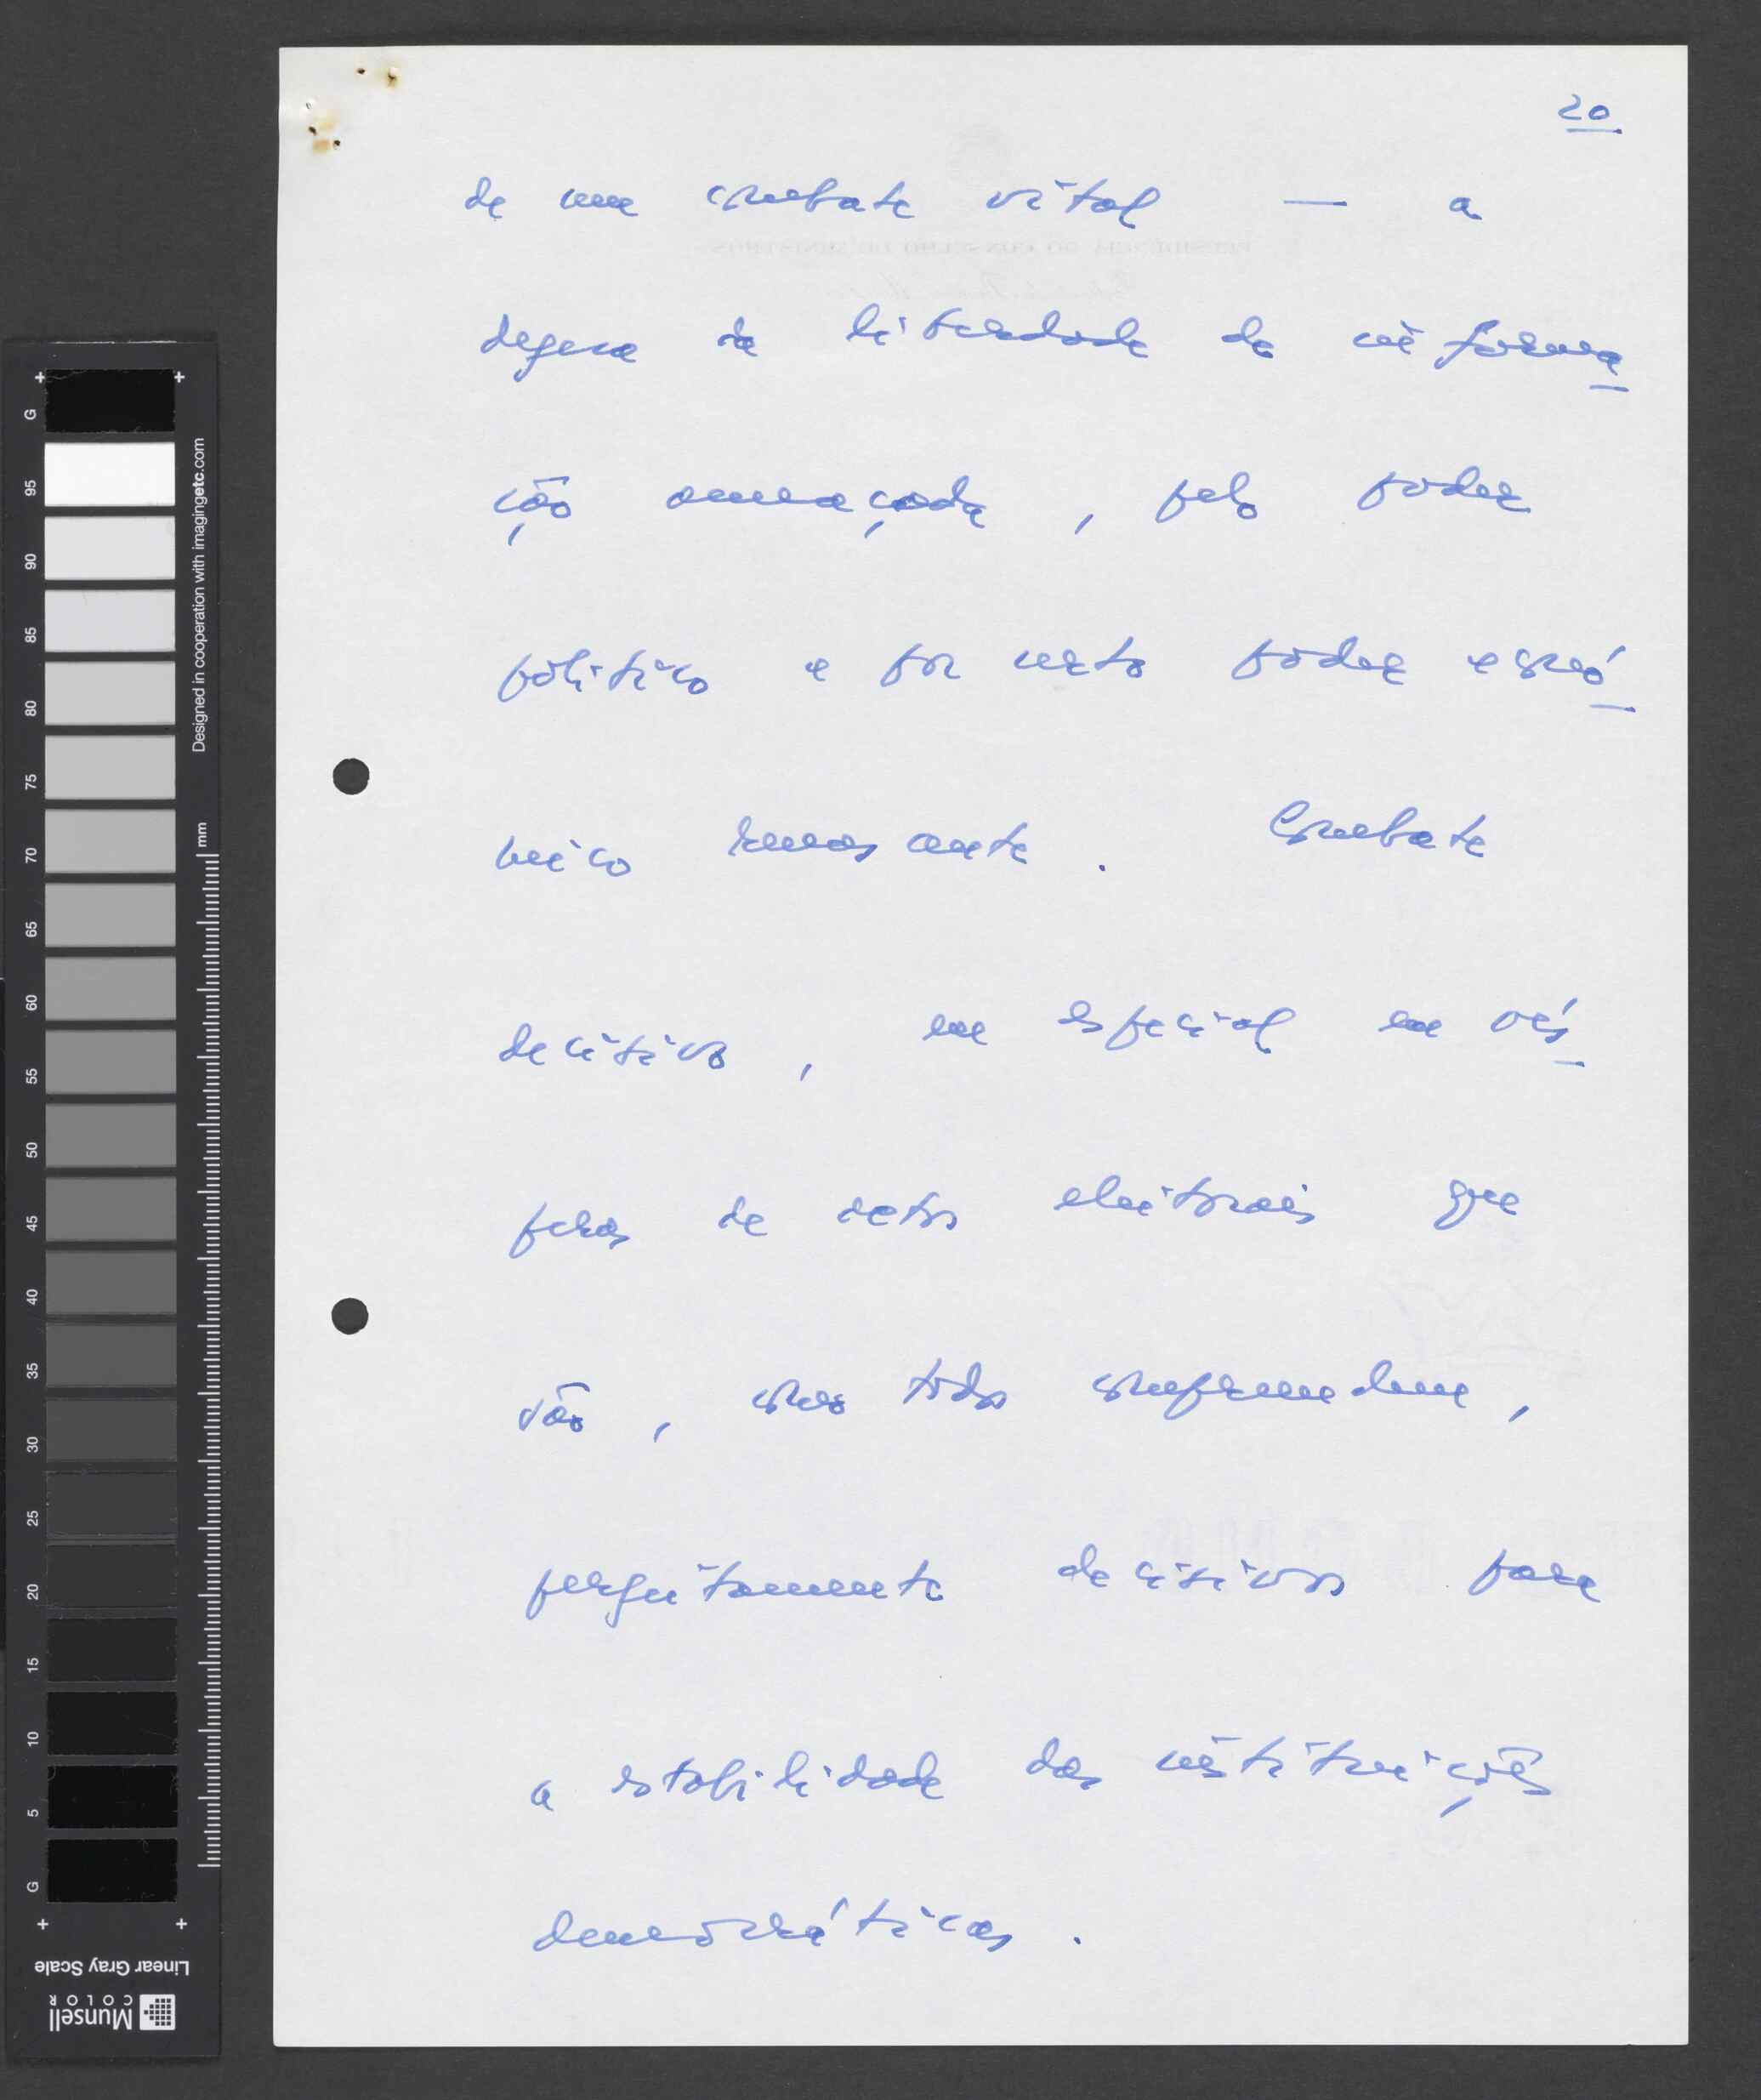 20
de um combate vital — a
defesa da liberdade de informa
ção ameaçada, pelo poder
político e por certo poder econó
mico emergente. Combate
decisivo, em especial em vés
peras de actos eleitorais que
são, como todos compreendem,
perfeitamente decisivos para
a estabilidade das instituições
democráticas.
PRESIDÊNCIA DO CONSELHO DE MINISTROS
G
95
90
85
80
75
70
65
60
55
50
45
40
35
30
25
20
15
10
5
G
Designed in cooperation with imagingetc.com
mm
Linear Gray Scale
Munsell
COLOR